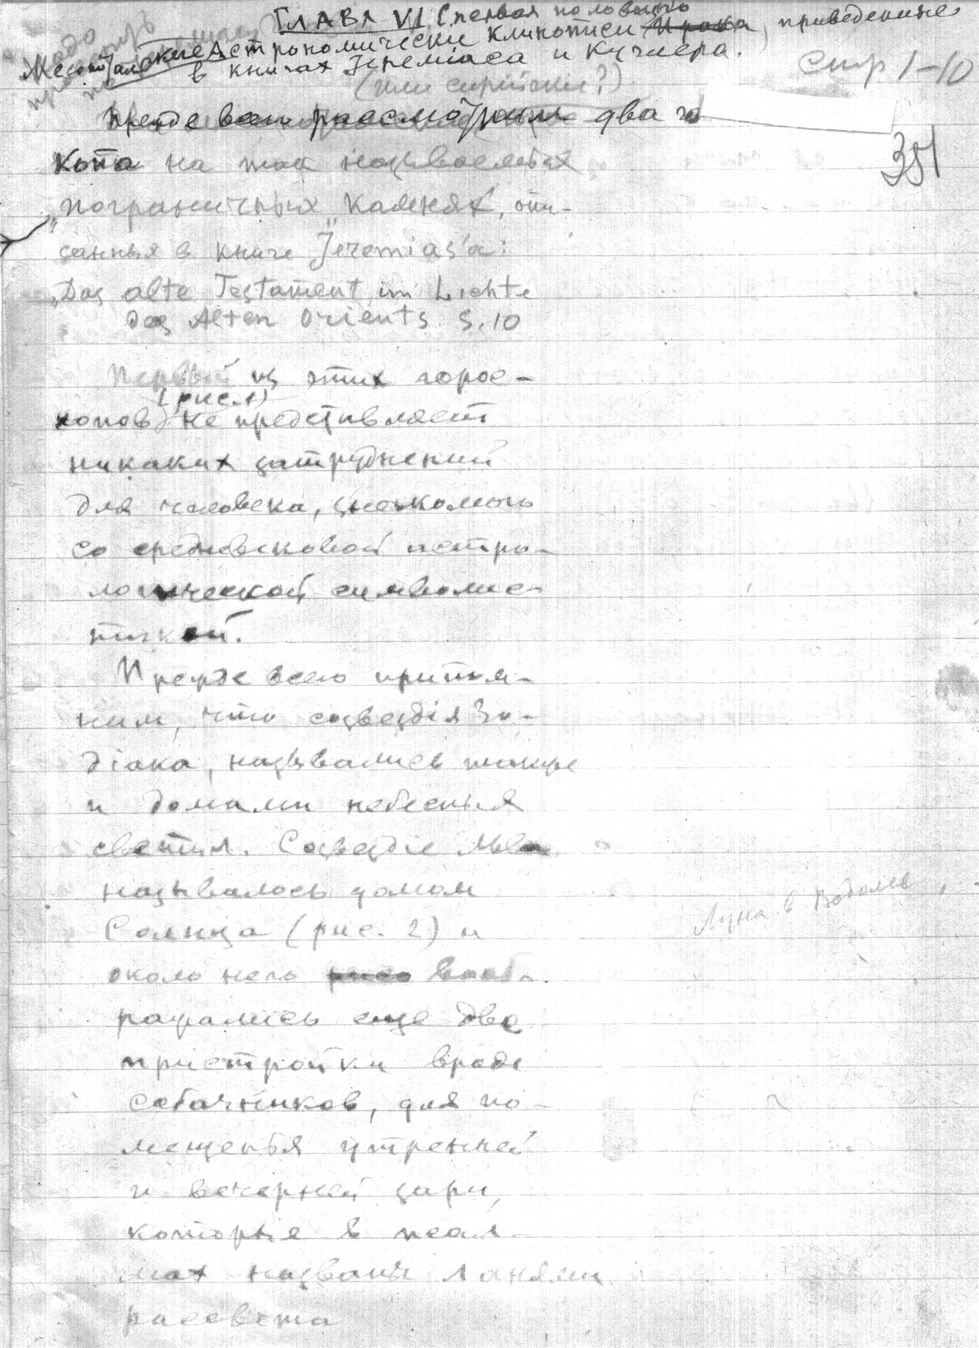 ГЛАВА VI (первая половина)
Месопотамские Астрономические клинописи Ирака, приведенные
в книгах Іереміаса и Куглера.
(или сирийские?)
Стр 1-10
351
Прежде всего рассмотрим два го
копа на так называемых
„пограничных" камнях, опи-
санныя в книге Jeremias'a:
„Das alte Testament im Lichte
des Alten Orients S. 10
Первый из этих горос-
(рис. 1)
копов не представляет
никаких затруднений
для человека, знакомого
со средневековой астро-
логической символис-
тикой.
Прежде всего припом-
ним, что созвездія Зо-
діака, назывались также
и домами небесных
светил. Созвездіе Льва
называлось домом
Солнца (рис. 2) и
около него вооб-
ражались еще две
пристройки вроде
собачников, для по-
мещенія утренней
и вечерней зари,
которые в псал-
мах названы ланями
рассвета
Луна в Водолее